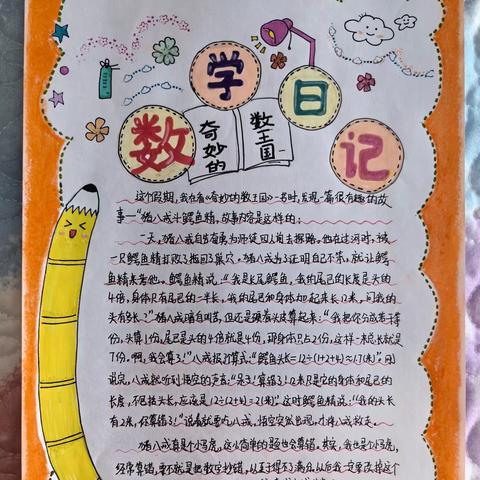 数学日记
奇妙的
数王国
这个假期，我在看《奇妙的数王国》一书时，发现一篇很有趣的故
事——“猪八戒斗鳄鱼精，故事内容是这样的：
一天，猪八戒自告奋勇为师徒四人前去探路。他在过河时，被
一只鳄鱼精打败了拖回了巢穴。猪八戒为了证明自己不笨，就让鳄
鱼精来考他。鳄鱼精说：“我是长尾鳄鱼，我的尾巴的长度是头的
4倍，身体只有尾巴的一半长。我的尾巴和身体加起来长12米，问我的
头有多长？”猪八戒暗自叫苦，但还是硬着头皮算起来：“我把你分成若干等
份，头算1份，尾巴是头的4倍就是4份，那身体只占2份，这样一起总长就是
7份。啊，我会算了！”八戒报了算式：“鳄鱼头长=12÷(1+2+4)≈1.7(米)”刚
说完，八戒就听到悟空的声音：“呆子！算错了！12米只是它的身体和尾巴的
长度，不包括头长，应该是12÷(2+4)=2(米)”这时鳄鱼精说：“我的头长
有2米，你算错了！”说着就要吃八戒，悟空突然出现，才将八戒救走。
猪八戒真是个小马虎，这么简单的题也会算错。其实，我也是个小马虎，
经常算错，要不就是把数字抄错，从